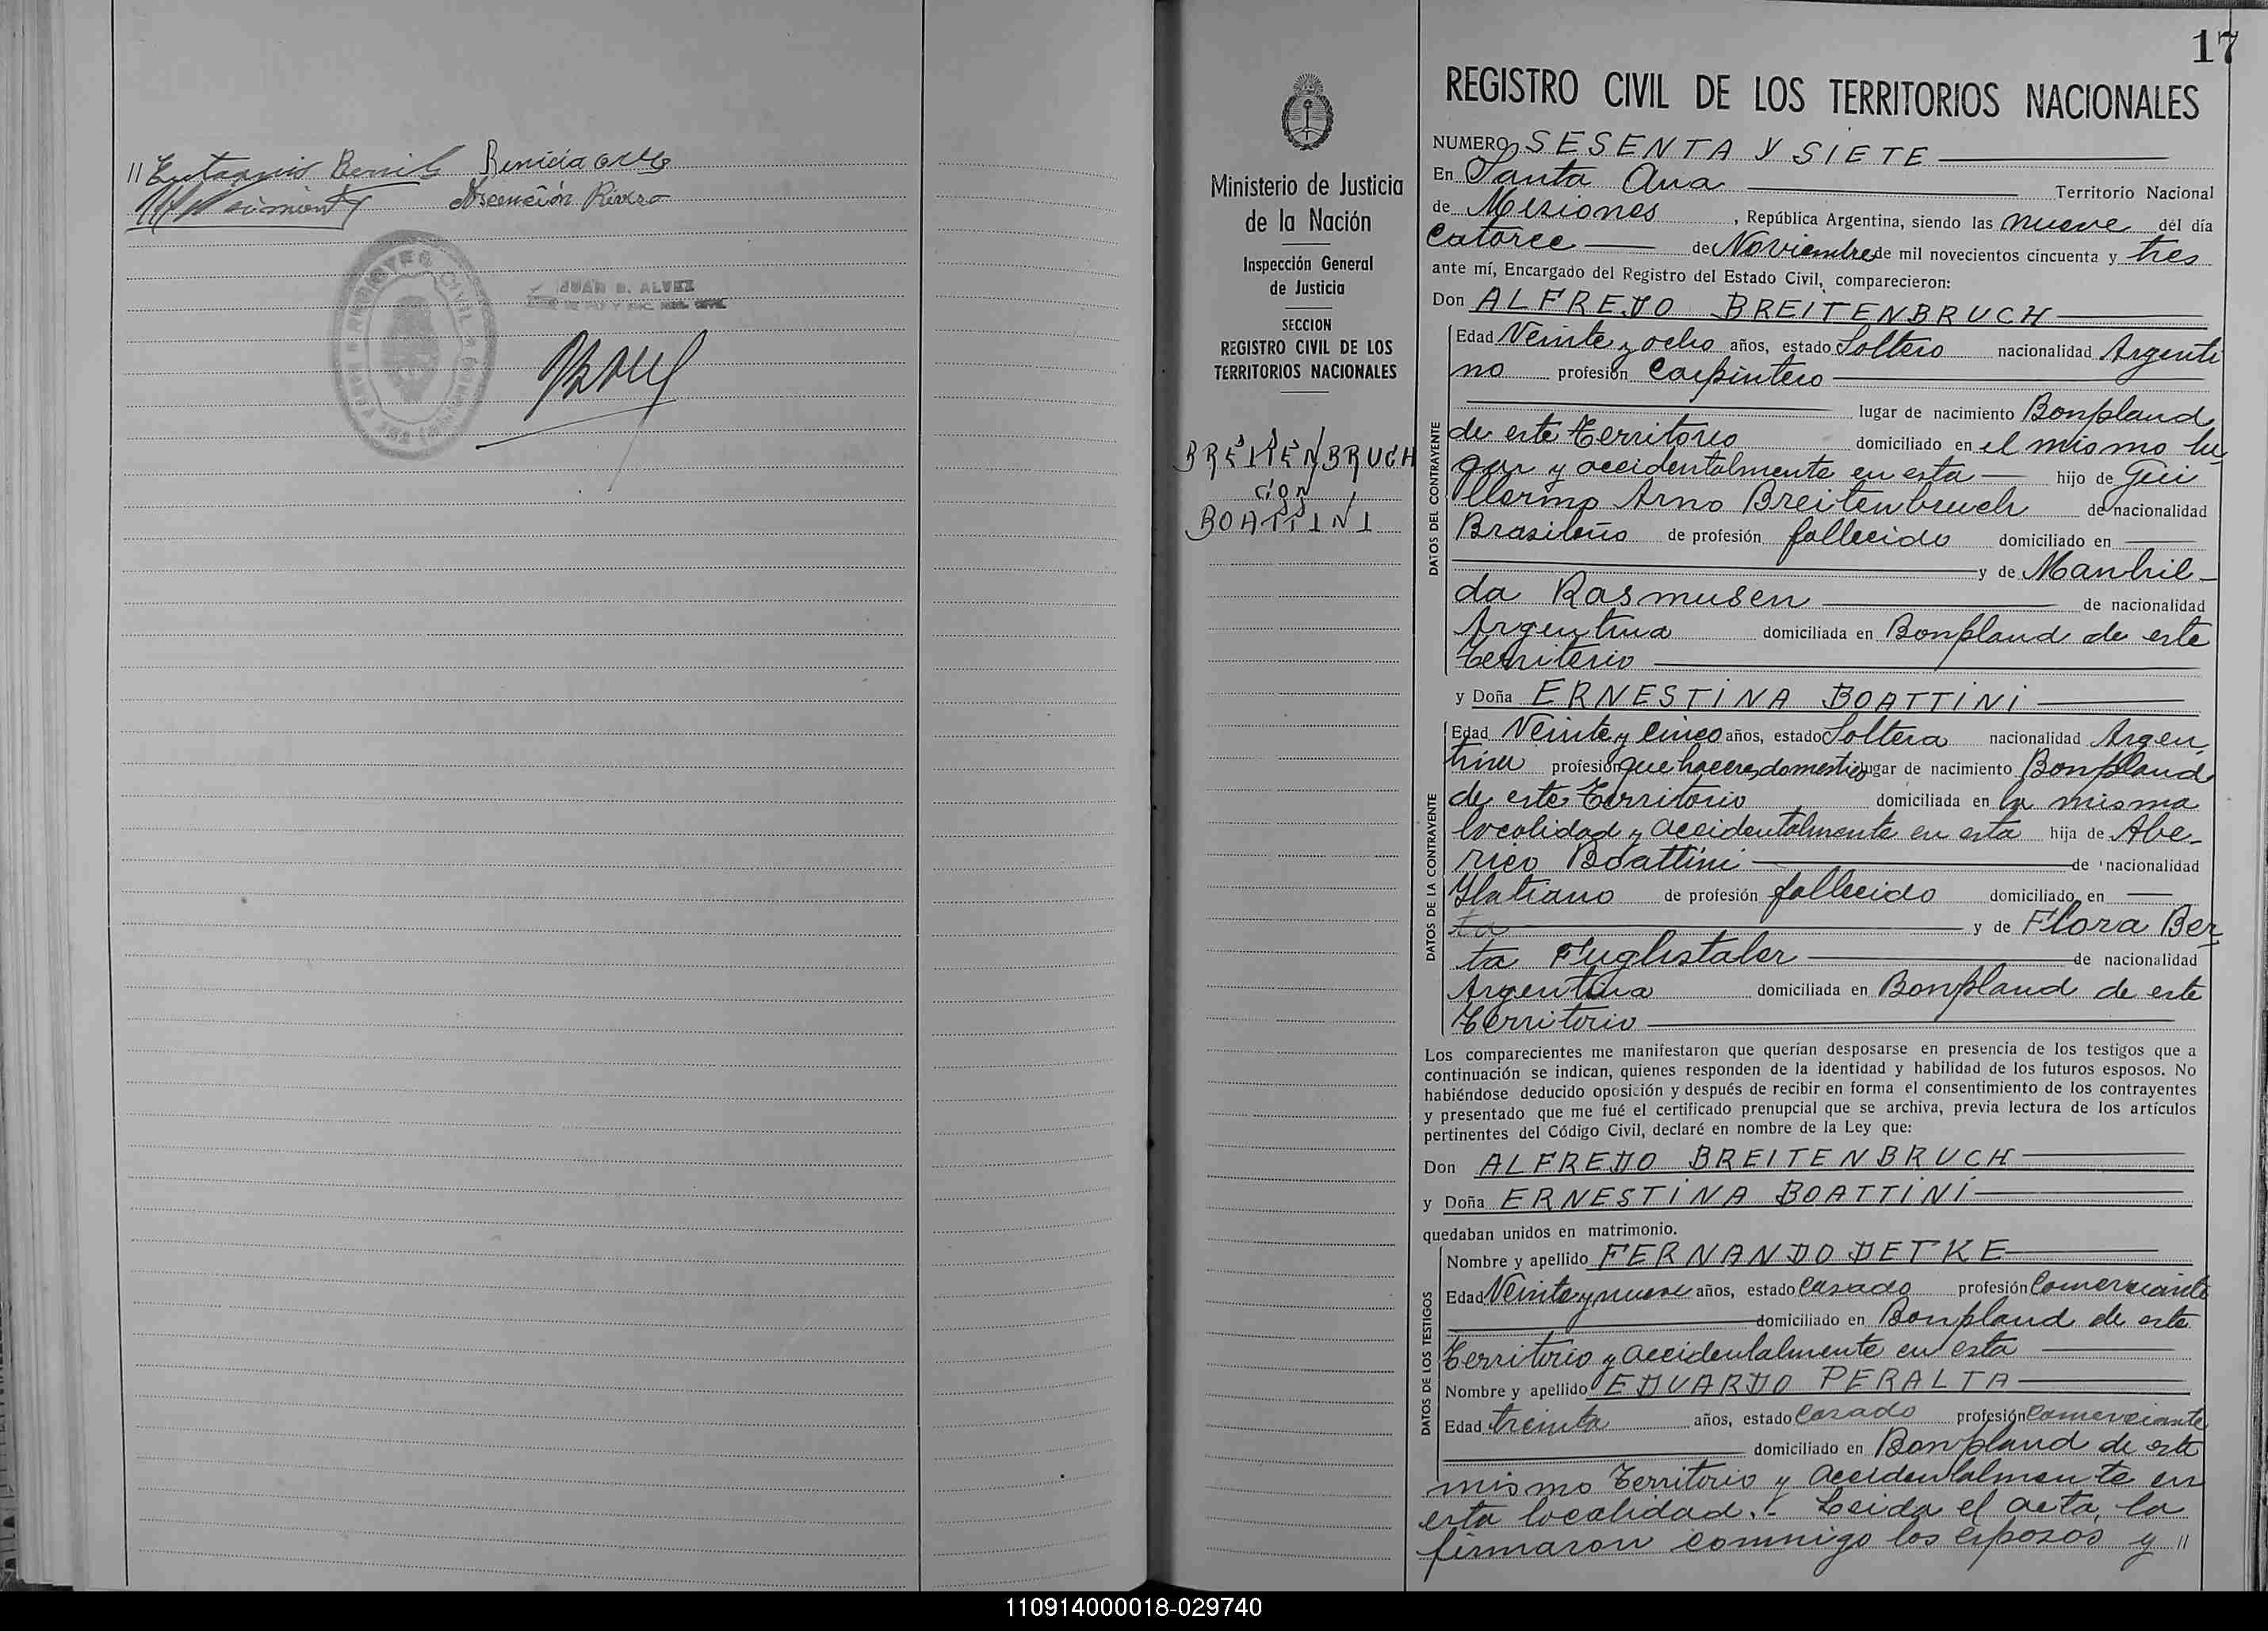 Benicia
Ascención Rivero
REGISTRO CIVIL
JUAN B. ALVEZ
17
REGISTRO CIVIL DE LOS TERRITORIOS NACIONALES
Ministerio de Justicia
de la Nación
Inspección General
de Justicia
SECCION
REGISTRO CIVIL DE LOS
TERRITORIOS NACIONALES
BREITENBRUCH
con
BOATTINI
NUMERO SESENTA Y SIETE
En Santa Ana Territorio Nacional
de Misiones, República Argentina, siendo las nueve del día
Catorce de Noviembre de mil novecientos cincuenta y tres
ante mí, Encargado del Registro del Estado Civil, comparecieron:
Don ALFREDO BREITENBRUCH
DATOS DEL CONTRAYENTE
Edad Veinte y ocho años, estado Soltero nacionalidad Argenti
no profesión Carpintero
lugar de nacimiento Bonpland
de este Territorio domiciliado en el mismo lu
gar y accidentalmente en esta hijo de Gui
llermo Arno Breitenbruch de nacionalidad
Brasileño de profesión fallecido domiciliado en
y de Manhil-
da Rasmusen de nacionalidad
Argentina domiciliada en Bonpland de este
Territorio
y Doña ERNESTINA BOATTINI
DATOS DE LA CONTRAYENTE
Edad Veinte y Cinco años, estado Soltera nacionalidad Argen
tina profesión que haceres domestico lugar de nacimiento Bonpland
de este Territorio domiciliada en la misma
localidad y accidentalmente en esta hija de Abe-
rico Boattini de nacionalidad
Italiano de profesión fallecido domiciliado en
ta y de Flora Ber
ta Fuglistaler de nacionalidad
Argentina domiciliada en Bonpland de este
Territorio
Los comparecientes me manifestaron que querían desposarse en presencia de los testigos que a
continuación se indican, quienes responden de la identidad y habilidad de los futuros esposos. No
habiéndose deducido oposición y después de recibir en forma el consentimiento de los contrayentes
y presentado que me fué el certificado prenupcial que se archiva, previa lectura de los artículos
pertinentes del Código Civil, declaré en nombre de la Ley que:
Don ALFREDO BREITENBRUCH
y Doña ERNESTINA BOATTINI
quedaban unidos en matrimonio.
DATOS DE LOS TESTIGOS
Nombre y apellido FERNANDO DETKE
Edad Veinte y nueve años, estado Casado profesión Comerciante
domiciliado en Bonpland de este
Territorio y accidentalmente en esta
Nombre y apellido EDUARDO PERALTA
Edad treinta años, estado Casado profesión Comerciante
domiciliado en Bonpland de este
mismo Territorio y accidentalmente en
esta localidad.- Leida el acta, la
firmaron conmigo los esposos y //
110914000018-029740